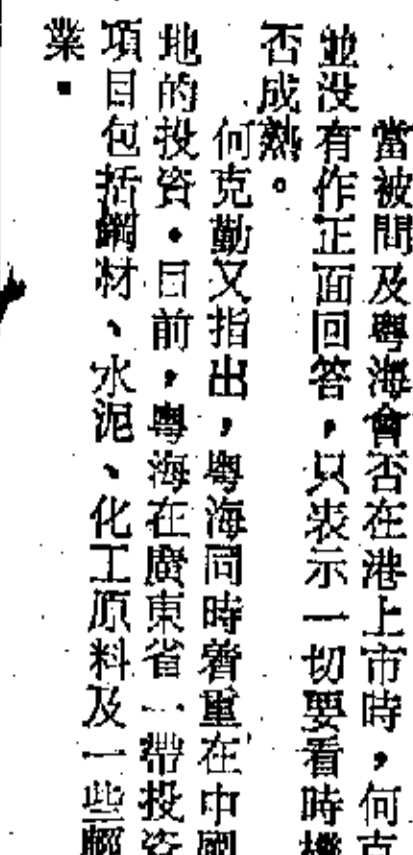 當被問及粵海會否在港上市時，何克
並没有作正面回答，只表示一切要看時機
否成熟。
何克勤又指出，粵海同時着重在中國
地的投資。目前，粵海在廣東省一帶投資
項目包括鋼材、水泥、化工原料及一些輕
業。